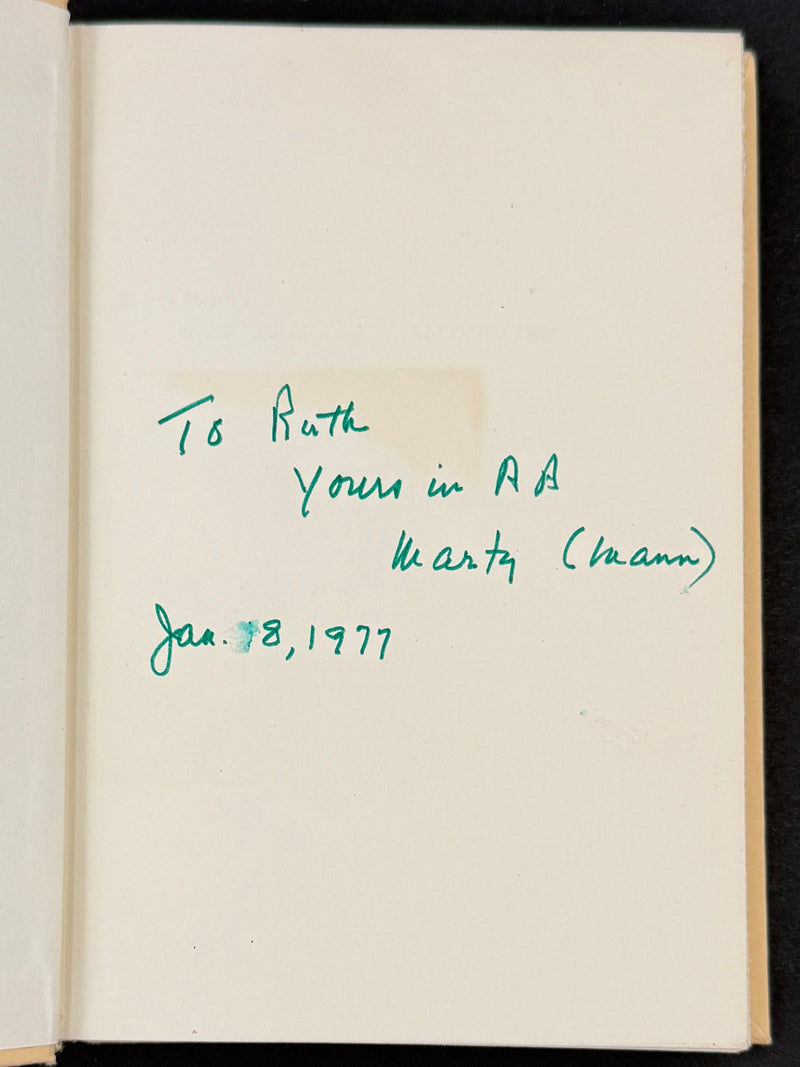 To Ruth
Yours in AA
Marty (Mann)
Jan. 18, 1977